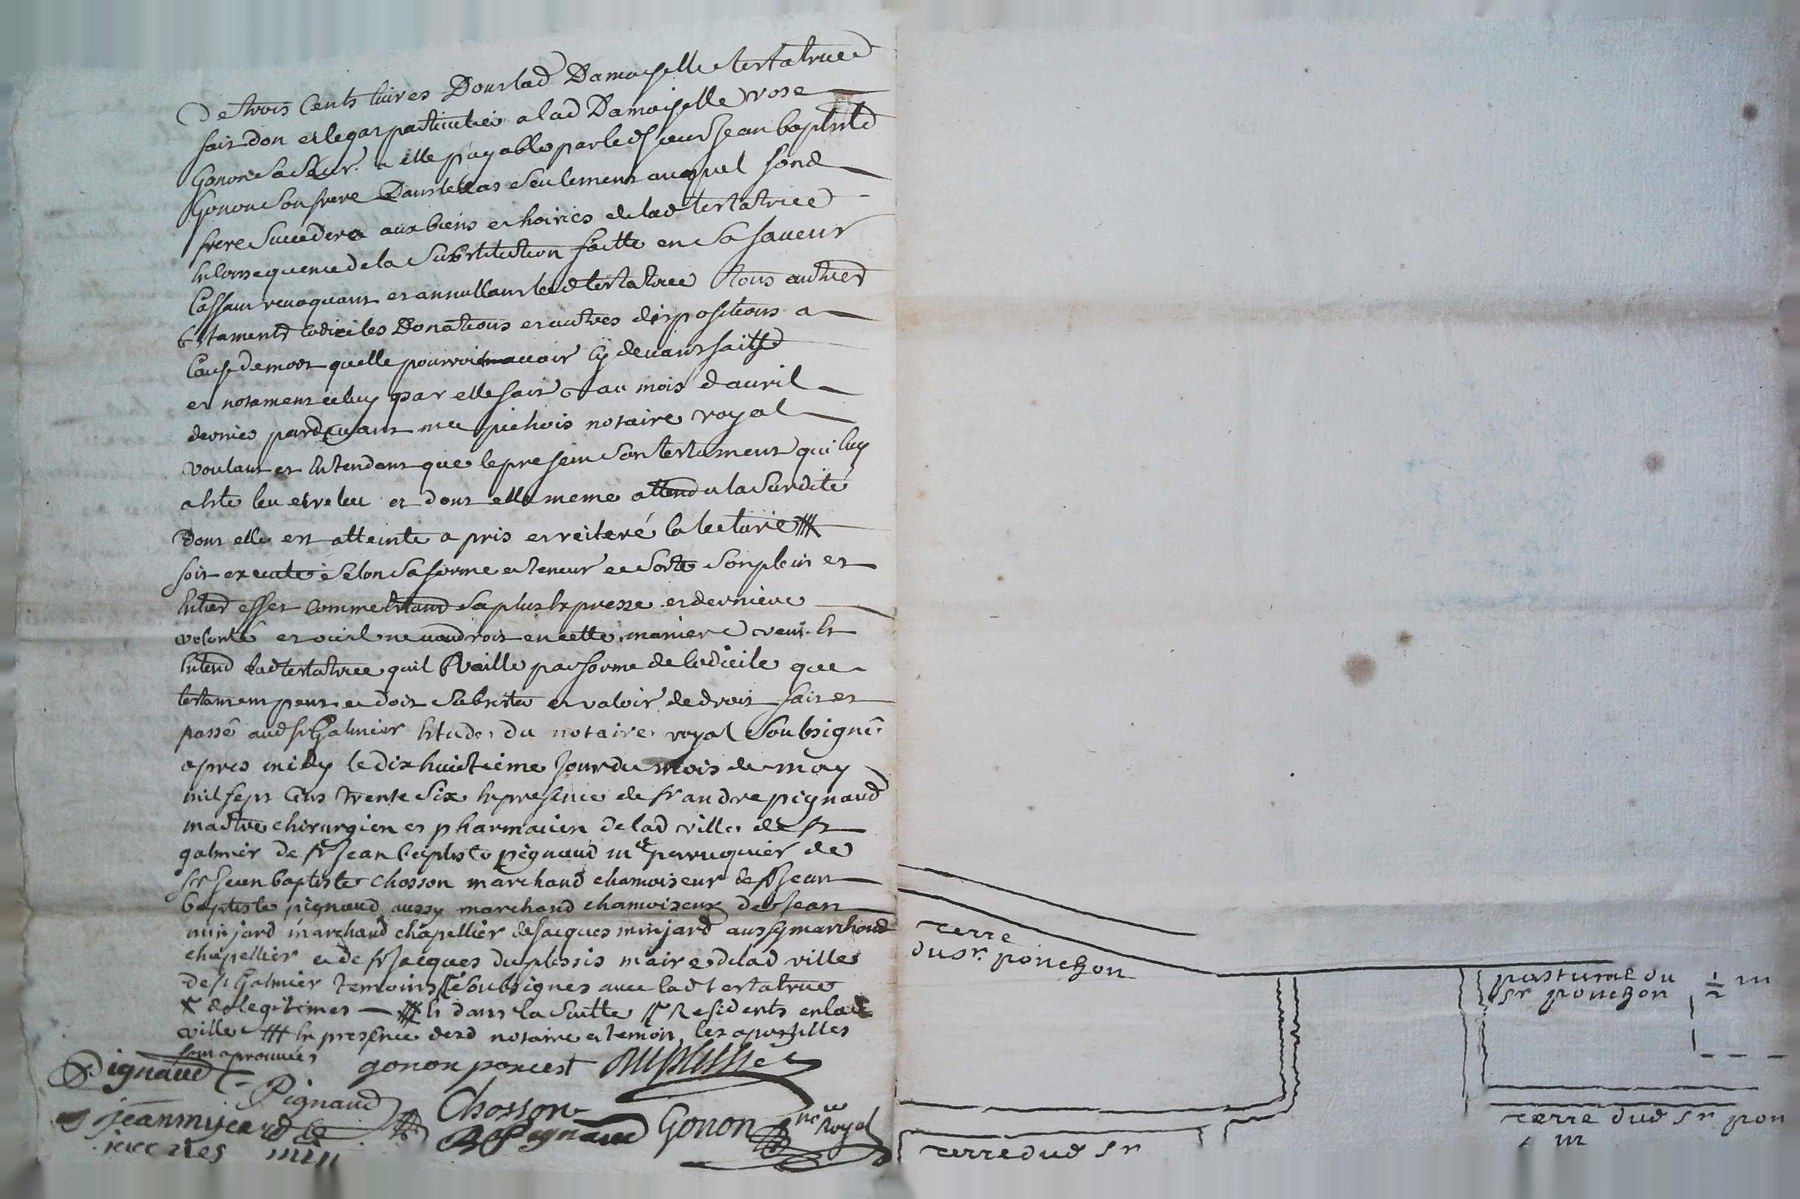 De trois Cents livres Dont lad Damoiselle testatrice
fait don et legat particulier a lad Damoiselle rose
Gonon sa sœur a elle payable par led sieur Jean baptiste
Gonon son frere Dans le cas seulement auquel sond
frere succedera aux biens et hoiries de lad testatrice
En Consequence de la Substitution faitte en sa faveur
Cassant revoquant et annullant lad testatrice Tous autres
testaments Codiciles Donations et autres dispositions a
Cause de mort quelle pourroit avoir cÿ devant faitte
et notament celuy par elle fait au mois d'avril
dernier pardevant me pichois notaire royal
voulant et Entendant que le present son testament qui luy
a Eté leu et releu et dont elle meme attendu la Surdité
Dont elle est atteinte a pris et reiteré la lecture #
soit executé selon sa forme et teneur et sorte son plein et
Entier effet comme Etant sa plus Expresse et derniere
volonté et ou il ne vaudroit en cette maniere veut et
Entend lad testatrice quil vaille par forme de Codicile que
testament peut et doit subsister et valoir de droit fait et
passé aud st Galmier Etude du notaire royal Soubsigné
apres midy le dix huitieme Jour du mois de may
mil sept Cens trente Six En presence de sr andre pignaud
maitre chirurgien et pharmacien de lad ville de st
galmier de sr Jean baptiste pignaud me perruquier de
sr Jean baptiste Chosson marchand chamoiseur de sr Jean
baptiste pignaud aussy marchand chamoiseur de Jean
minjard marchand chapellier de Jacques minjard aussy marchand
chapellier et de sr Jacques duplessis maire de lad ville
de st Galmier temoins Soubsignes avec lad testatrice
de legitimes — # Et dans la Suitte Residents en lad
ville # En presence desd notaire et temoin les apostilles
sont aprouvées
Pignaud gonon poncest Duplessis
Pignaud Chosson
jean minjard Pignaud Gonon nre Royal
jacques min
Terre
du sr. ponchon
pastural du
sr ponchon
½ m
Terre dud sr
Terre dud sr pon
m